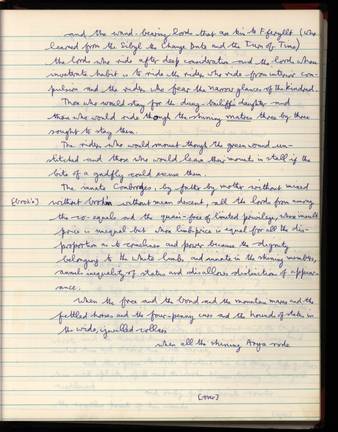 and the wand-bearing lords that are kin to Fferyllt (who
learned from the Sibyl the Change Date and the Turn of Time)
the lords who ride after deep consideration and the lords whose
inveterate habit is to ride the riders who ride from interior com-
pulsion and the riders who fear the narrow glances of the kindred.
Those who would stay for the dung-bailiff's daughter and
those who would ride though the shining matres three by three
sought to stay them.
The riders who would mount though the green wound un-
stitched and those who would leave their mounts in stall if the
bite of a gadfly could excuse them.
The innate Combroges, by father by mother without mixed
without brok'n without mean descent, all the lords from among
the co-equals and the quasi-free of limited privilege, whose insult
price is unequal but whose limb-price is equal for all the dis-
proportion as to comeliness and power because the dignity
belonging to the white limbs and innate in the shining members,
annuls inequality of status and disallows distinction of appear-
ance.
When the free and the bond and the mountain mares and the
fettled horses and the four-penny curs and the hounds of status in
the wide, jewelled collars
when all the shining Arya rode